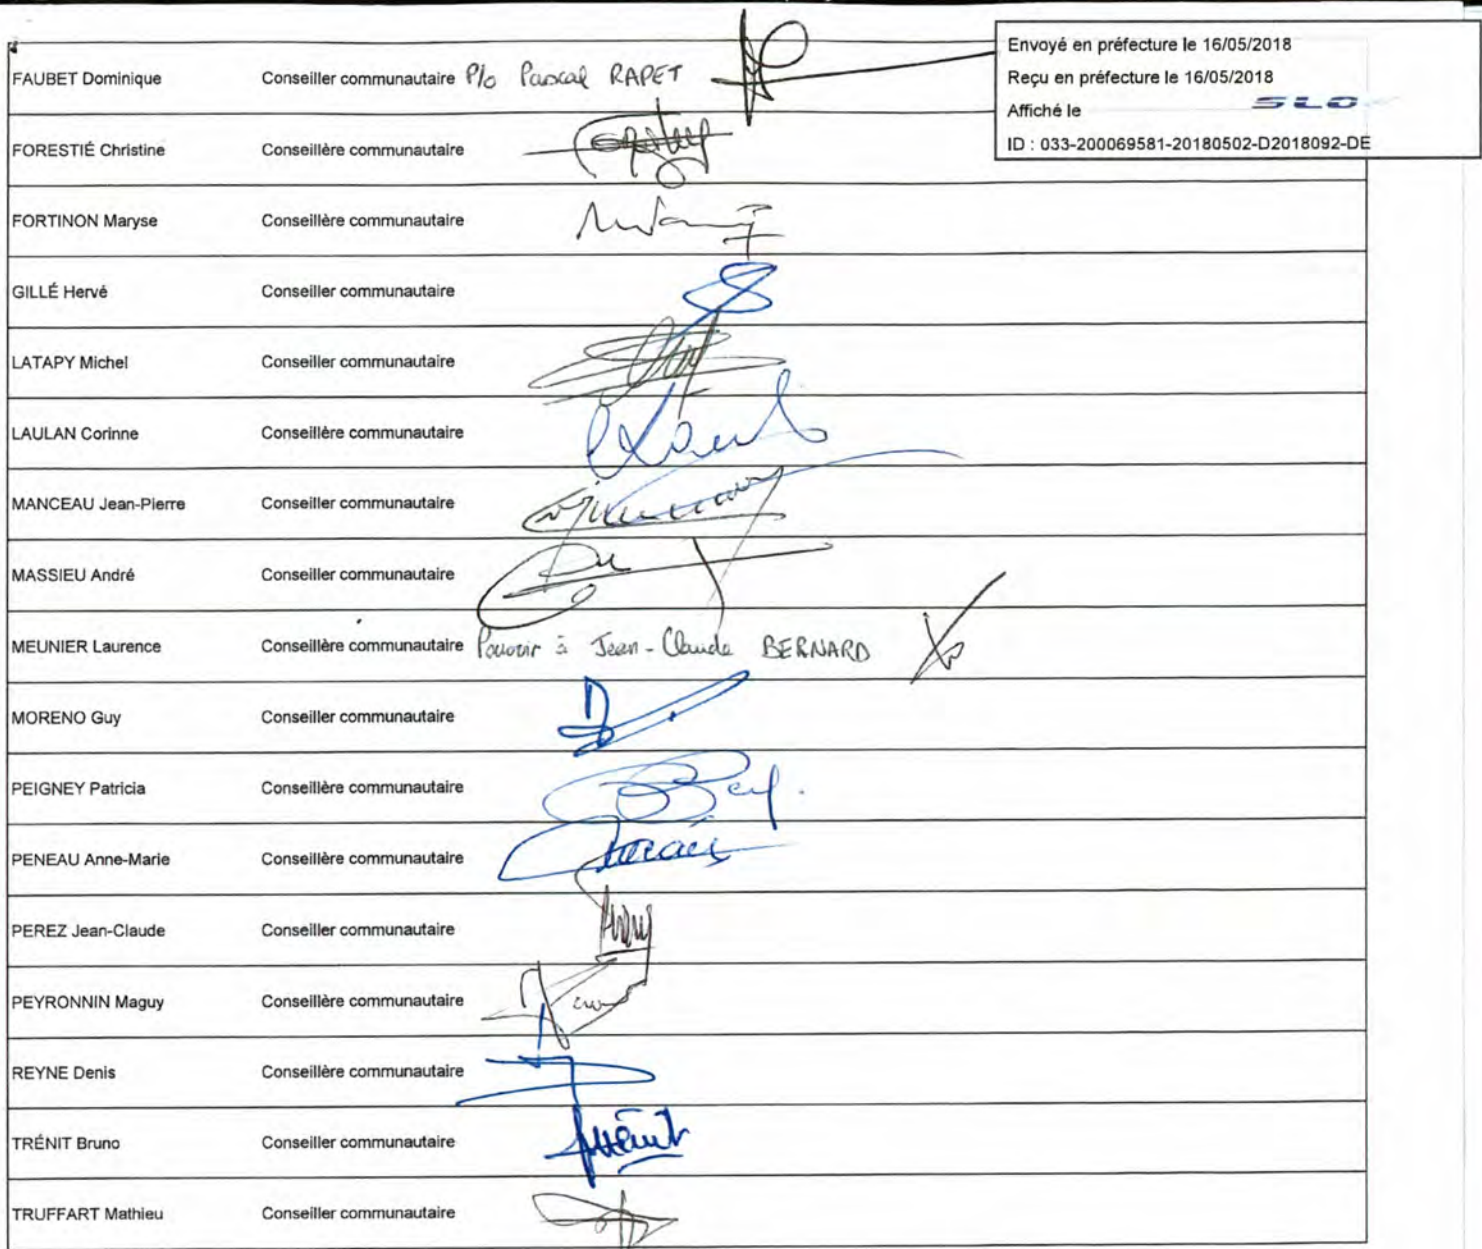 Envoyé en préfecture le 16/05/2018
Reçu en préfecture le 16/05/2018
Affiché le SLO
ID : 033-200069581-20180502-D2018092-DE
FAUBET Dominique Conseiller communautaire P/o Pascal RAPET
FORESTIÉ Christine Conseillère communautaire
FORTINON Maryse Conseillère communautaire
GILLÉ Hervé Conseiller communautaire
LATAPY Michel Conseiller communautaire
LAULAN Corinne Conseillère communautaire
MANCEAU Jean-Pierre Conseiller communautaire
MASSIEU André Conseiller communautaire
MEUNIER Laurence Conseillère communautaire Pouvoir à Jean-Claude BERNARD
MORENO Guy Conseiller communautaire
PEIGNEY Patricia Conseillère communautaire
PENEAU Anne-Marie Conseillère communautaire
PEREZ Jean-Claude Conseiller communautaire
PEYRONNIN Maguy Conseillère communautaire
REYNE Denis Conseillère communautaire
TRÉNIT Bruno Conseiller communautaire
TRUFFART Mathieu Conseiller communautaire